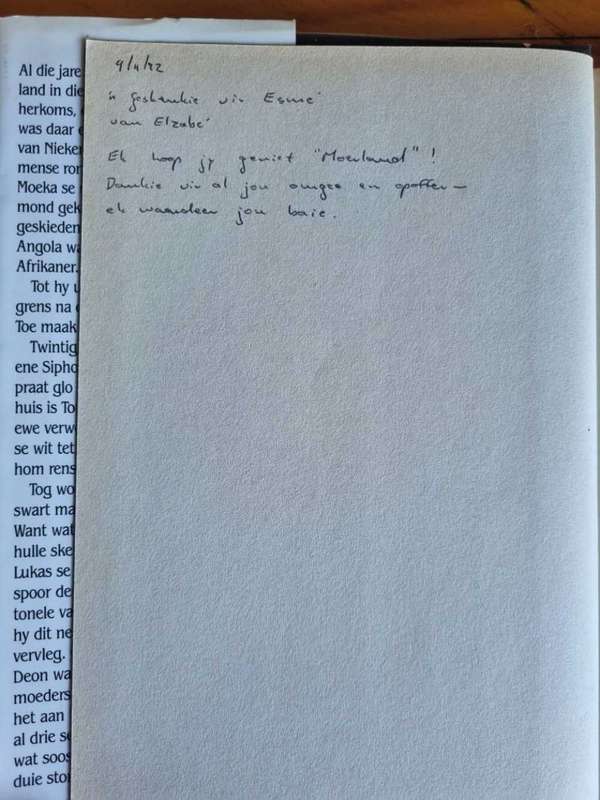 Al die jare
land in die
herkoms,
was daar
van Nieker
mense ror
Moeka se
mond gek
geskieden
Angola wa
Afrikaner.
Tot hy u
grens na
Toe maak
Twintig
ene Sipho
praat glo
huis is To
ewe verw
se wit tet
hom rens
Tog wo
swart ma
Want wat
hulle ske
Lukas se
spoor de
tonele va
hy dit ne
vervleg.
Deon wa
moeders
het aan
al drie s
wat soos
duie stor
'n geskenkie vir Esmé
van Elzabé
Ek hoop jy geniet "Moerland"!
Dankie vir al jou omgee en opoffer –
ek waardeer jou baie.